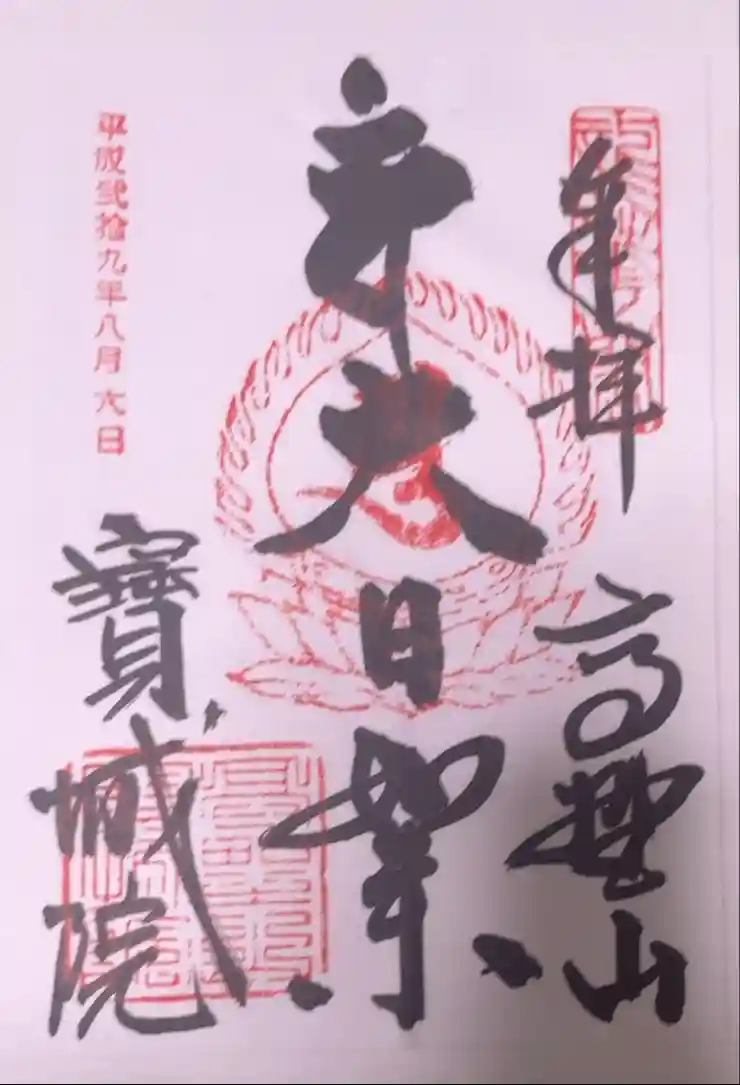 奉拝
高野山
大日如来
寶城院
平成弐拾九年八月六日